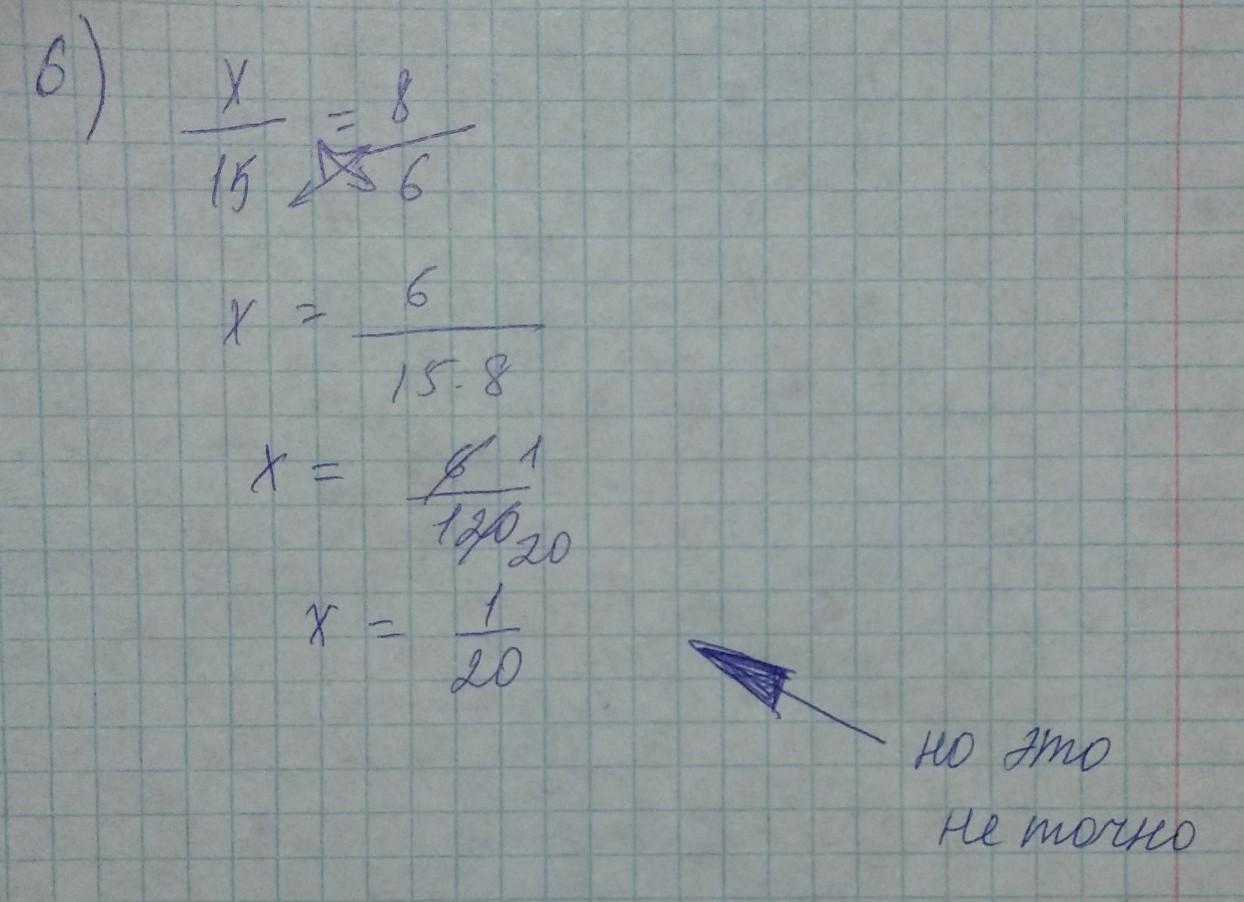 б)
x/15 = 8/6
x = 6/(15·8)
x = 6 1/120 20
x = 1/20
но это
не точно